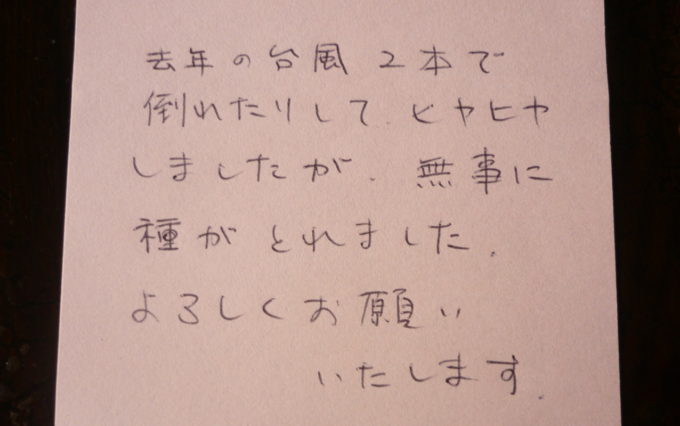 去年の台風 2本で
倒れたりして.ヒヤヒヤ
しましたが.無事に
種がとれました.
よろしくお願い
いたします.